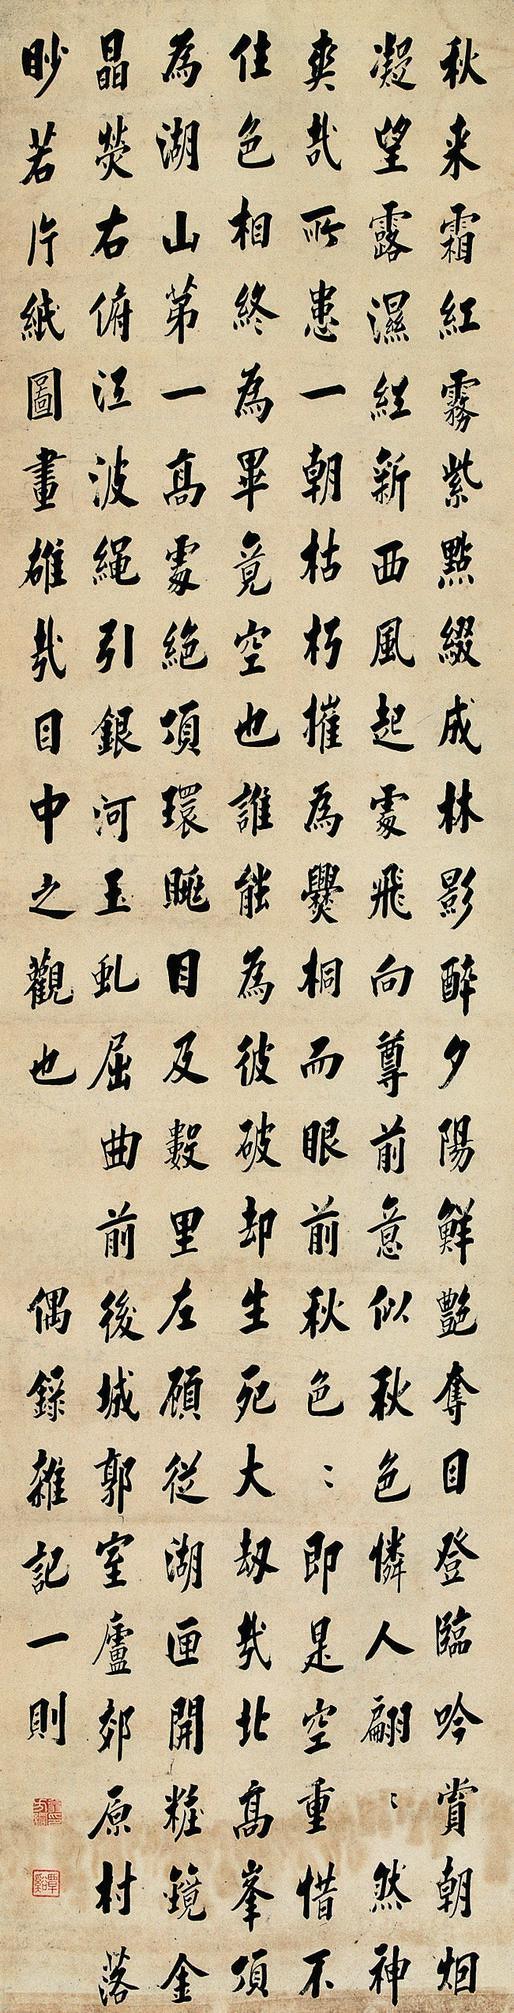 秋来霜紅霧紫點綴成林影醉夕陽鮮艷奪目登臨吟賞朝烟
凝望露濕紅新西風起處飛向尊前意似秋色憐人翩〻然神
爽哉所患一朝枯朽摧為爨桐而眼前秋色〻即是空重惜不
住色相終為畢竟空也誰能為彼破却生死大劫哉北高峯頂
為湖山第一高處絶頂環眺目及數里左顧從湖匣開粧鏡金
晶熒右俯江波繩引銀河玉虬屈曲前後城郭室廬郊原村落
眇若片紙圖畫雄哉目中之觀也 偶錄雜記一則